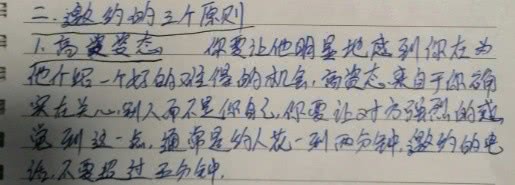 二、邀约的三个原则
1、高姿姿态 你要让他明显地感到你在为
他介绍一个好的难得的机会,高姿态来自于你确
实在关心别人而不是你自己,你要让对方强烈的感
觉到这一点,通常是约人花一到两分钟,邀约的电
话,不要超过五分钟.